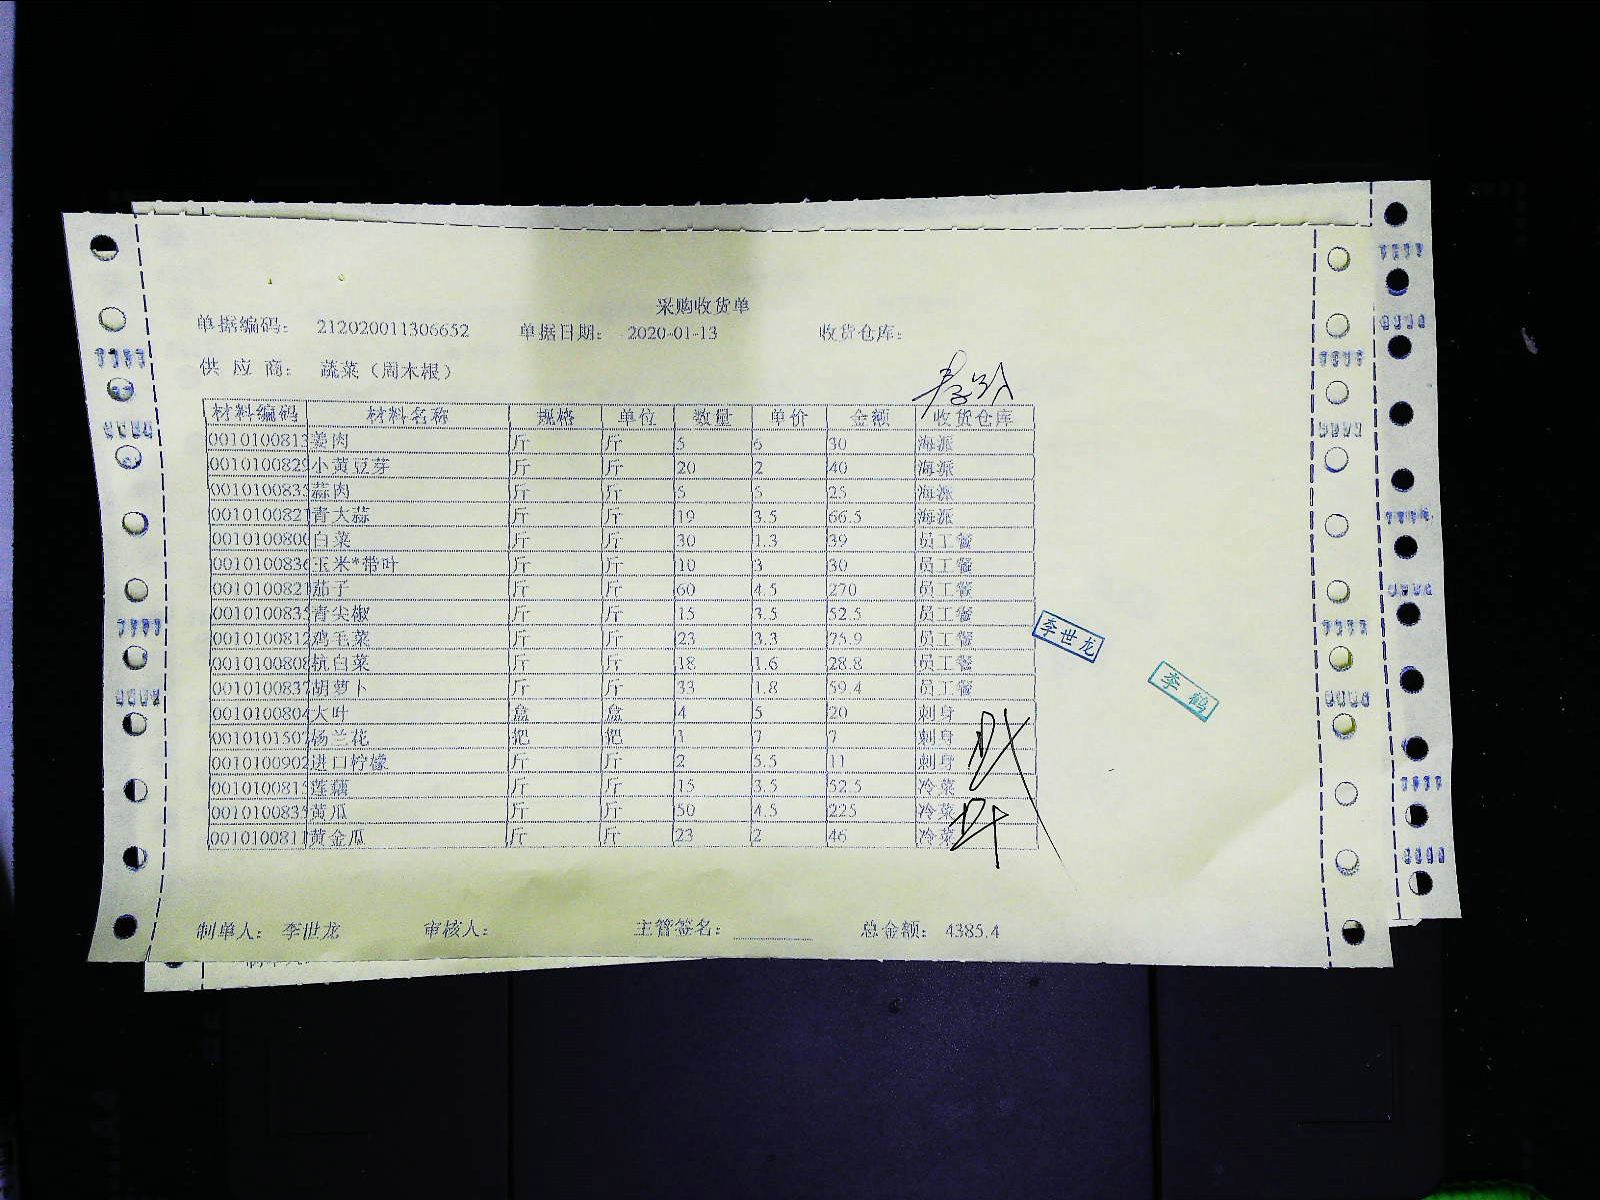 采购收货单
单据编码： 212020011306652 单据日期： 2020-01-13 收货仓库：
供 应 商： 蔬菜（周木根）
材料编码 材料名称 规格 单位 数量 单价 金额 收货仓库
0010100813 姜肉 斤 斤 5 6 30 海派
0010100829 小黄豆芽 斤 斤 20 2 40 海派
001010083 蒜肉 斤 斤 5 5 25 海派
0010100821 青大蒜 斤 斤 19 3.5 66.5 海派
0010100800 白菜 斤 斤 30 1.3 39 员工餐
0010100836 玉米*带叶 斤 斤 10 3 30 员工餐
0010100821 茄子 斤 斤 60 4.5 270 员工餐
0010100835 青尖椒 斤 斤 15 3.5 52.5 员工餐
0010100812 鸡毛菜 斤 斤 23 3.3 75.9 员工餐
0010100808 杭白菜 斤 斤 18 1.6 28.8 员工餐
0010100837 胡萝卜 斤 斤 33 1.8 59.4 员工餐
0010100804 大叶 盒 盒 4 5 20 刺身
0010101507 杨兰花 把 把 1 7 7 刺身
0010100902 进口柠檬 斤 斤 2 5.5 11 刺身
0010100815 莲藕 斤 斤 15 3.5 52.5 冷菜
0010100835 黄瓜 斤 斤 50 4.5 225 冷菜
0010100811 黄金瓜 斤 斤 23 2 46 冷菜
李世龙
李鹤
制单人： 李世龙 审核人： 主管签名： 总金额： 4385.4